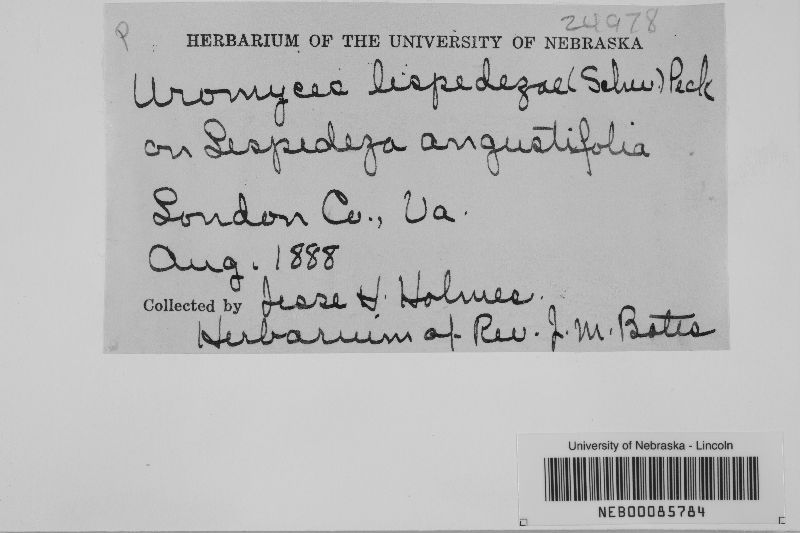 P
24978
HERBARIUM OF THE UNIVERSITY OF NEBRASKA
Uromyces lespedezae (Schw.) Peck
on Lespedeza angustifolia
London Co., Va.
Aug. 1888
Collected by Jesse H. Holmes.
Herbarium of Rev. J. M. Bates
University of Nebraska - Lincoln
NEB00085784